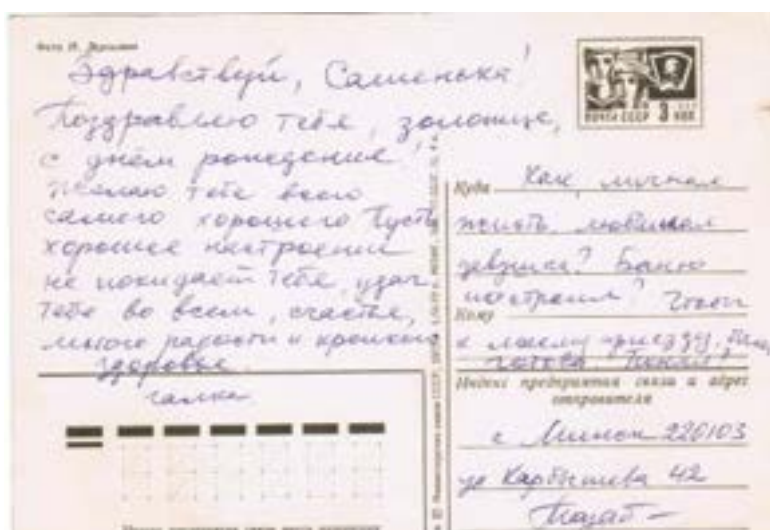 Здравствуй, Сашенька!
Поздравляю тебя, золотце,
с днём рождения!
Желаю тебе всего
самого хорошего Пусть
хорошее настроение
не покидает тебя, удач
тебе во всем, счастья,
много радости и крепкого
здоровья.
галка
ПОЧТА СССР 3 КОП
Куда Как, личная
жизнь, любимая
девушка? Баню
построил? Чтоб
Кому
к моему приезду,
готова. Понял?
Индекс предприятия связи и адрес
отправителя
г Минск 220103
ул Карбышева 42